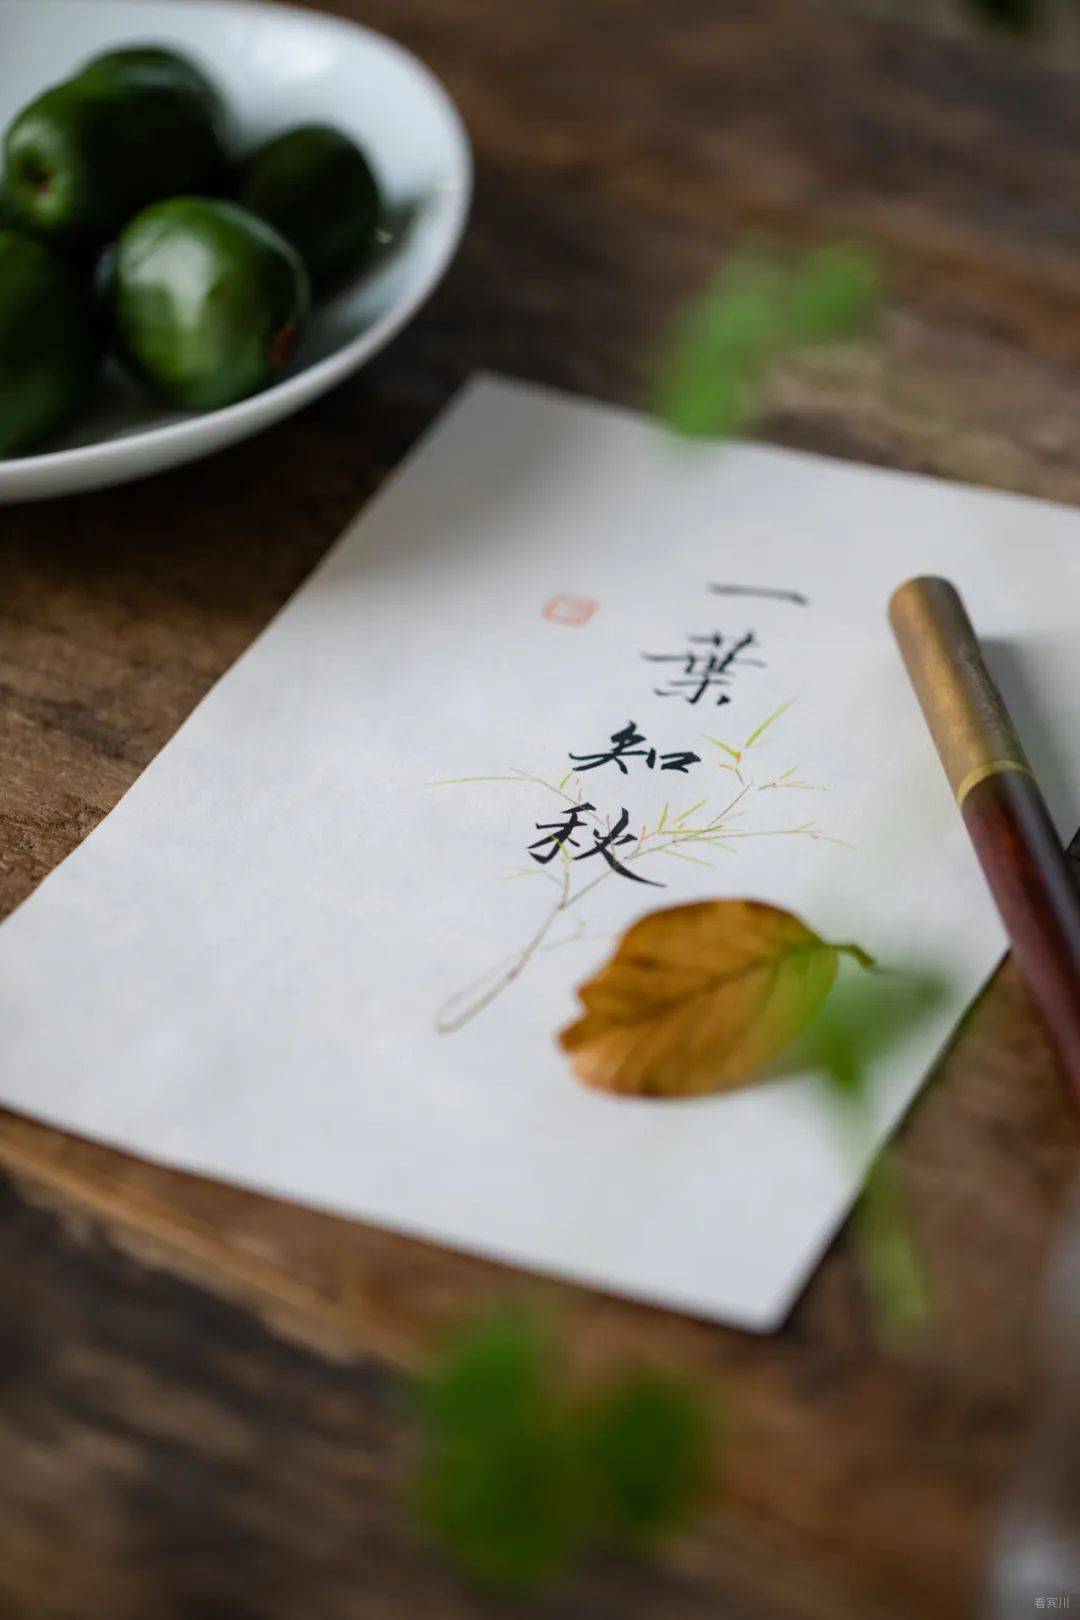 一葉知秋
看宾川